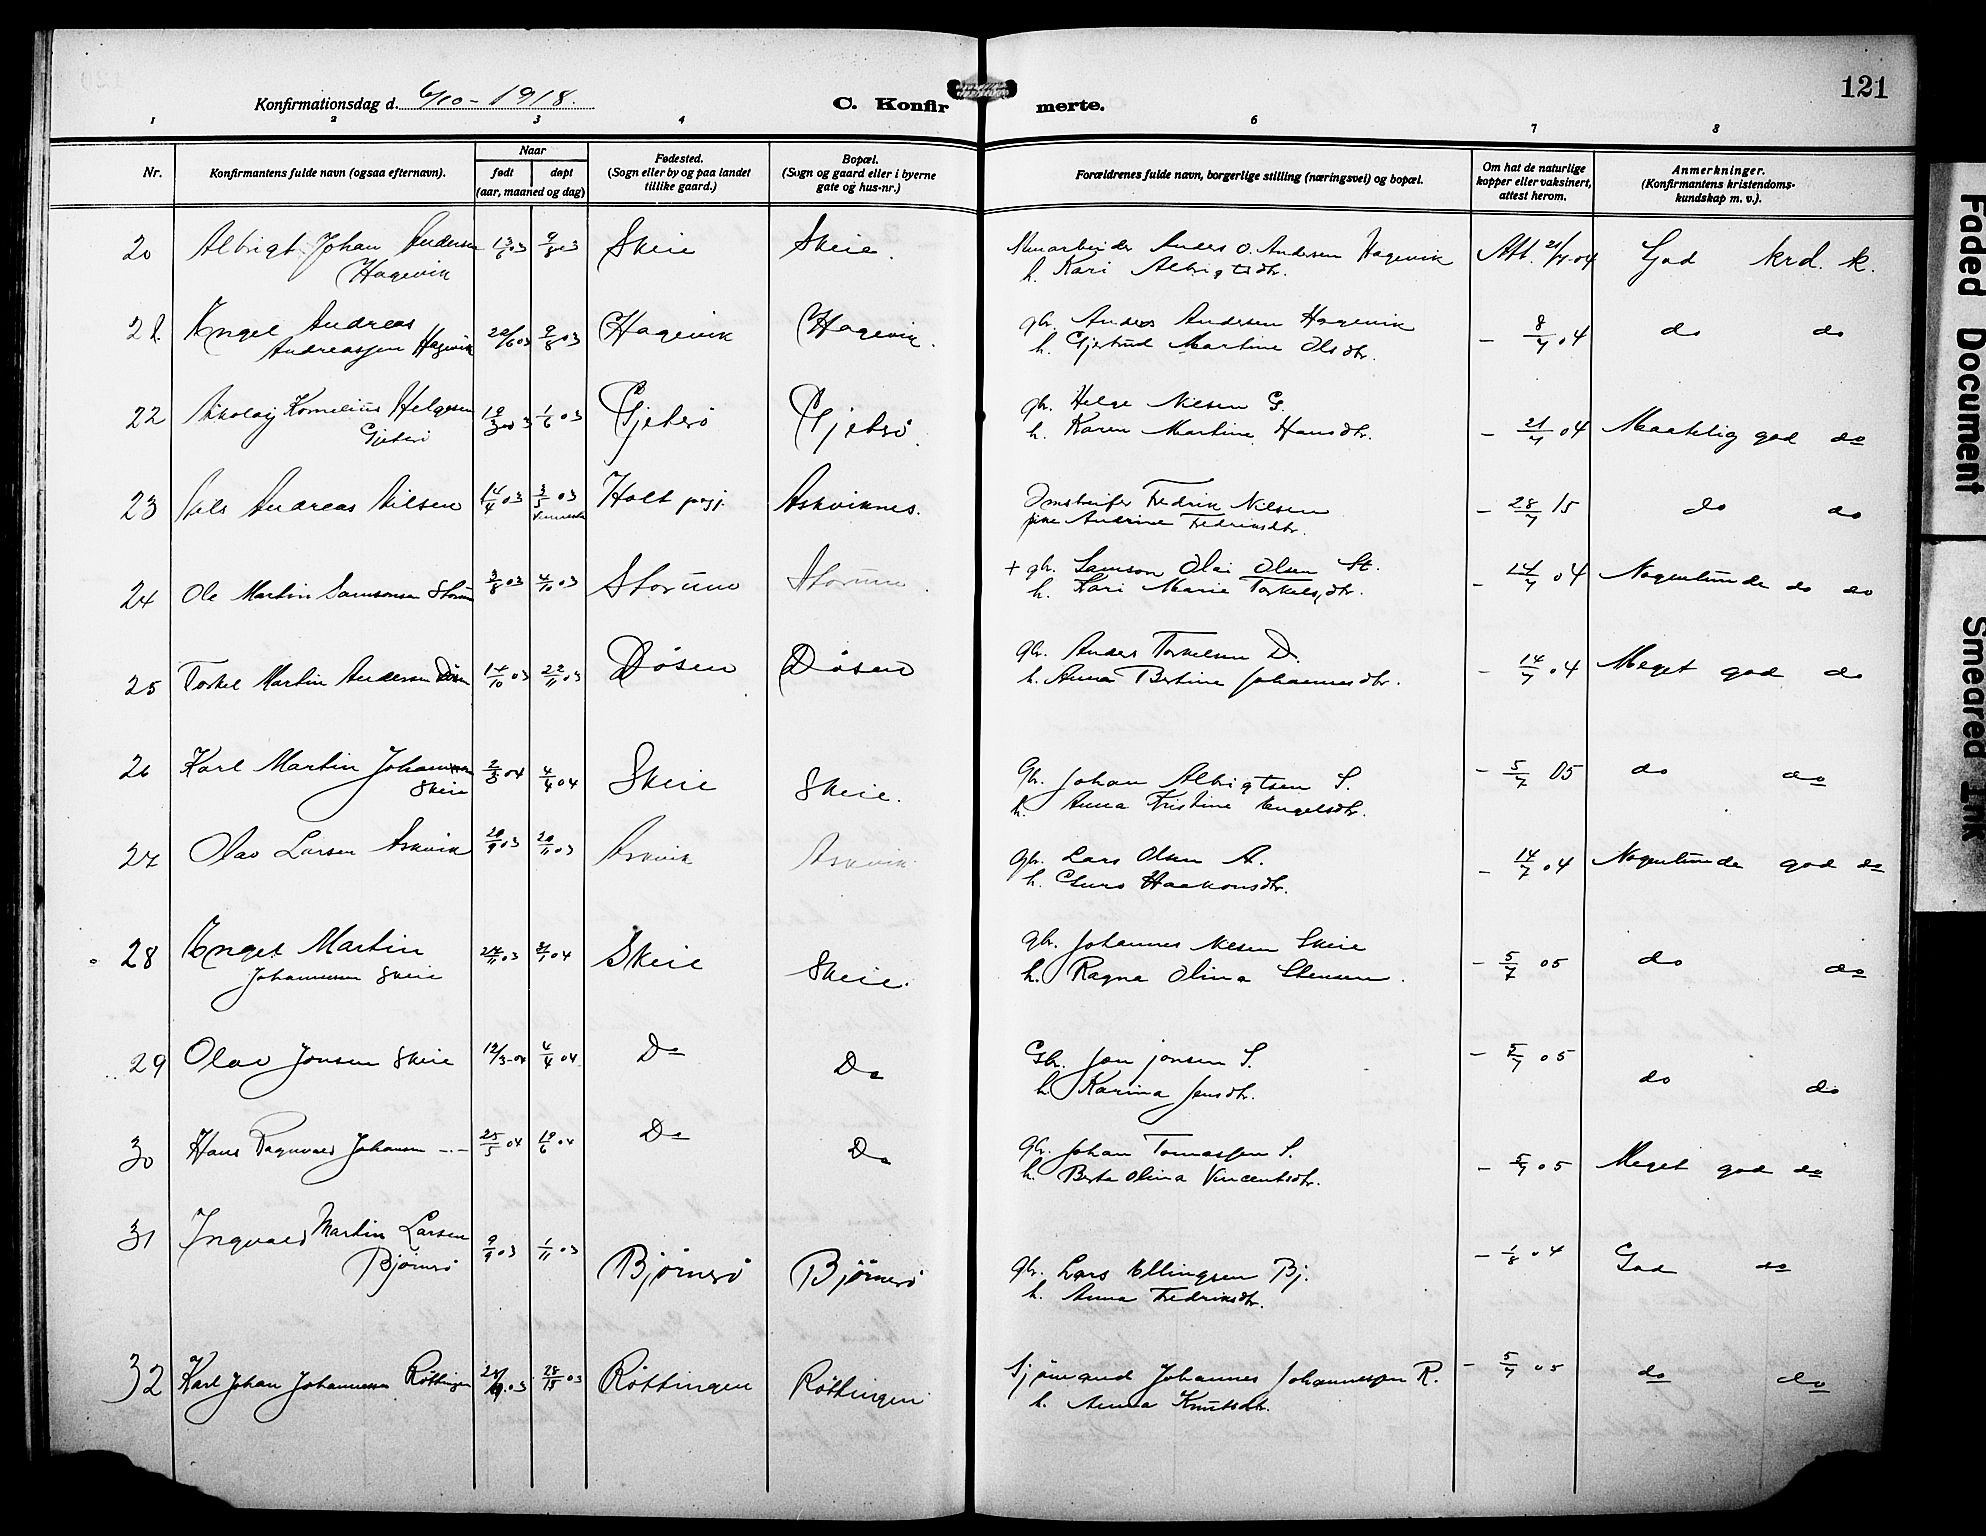 121
Konfirmationsdag d. 6/10 - 1918.
C. Konfirmerte.
1 2 3 4 6 7 8
Nr.
Konfirmantens fulde navn (ogsaa efternavn).
Naar
født døpt
(aar, maaned og dag)
Fødested.
(Sogn eller by og paa landet
tillike gaard.)
Bopæl.
(Sogn og gaard eller i byerne
gate og hus-nr.)
Forældrenes fulde navn, borgerlige stilling (næringsvei) og bopæl.
Om hat de naturlige
kopper eller vaksinert,
attest herom.
Anmerkninger.
(Konfirmantens kristendoms-
kundskap m. v.).
20 Albrigt Johan Andersen 9/8 03 Skeie Skeie. Anders O. Andersen Hagevik Att. God krd. k.
Hagevik h. Kari Albrigtsdtr.
21 Engel Andreas 20/6 03 9/8 03 Hagevik Hagevik. gbr. Anders Andersen Hagevik - 8/7 04 do do
Andreassen Hagevik h. Gjertrud Martine Olsdtr.
22 Nikolaj Kornelius Helgesen 1/6 03 Gjeterø Gjeterø. gbr. Helge Nilsen G. - 21/7 04 Maatelig god do
Gjeterø h. Karen Martine Hansdtr.
23 Nils Andreas Nilsen 14/4 03 3/5 03 Holt Askviknes. Fredrik Nilsen - 28/7 15 do do
pike Andrine Fredriksdtr.
24 Ole Martin Samsonsen Storum 3/8 03 4/10 03 Storum Storum + gbr. Samson Olai Olsen St. - 14/7 04 Nogenlunde do do
h. Kari Marie Torkelsdtr.
25 Torkel Martin Andersen Døsen 14/10 03 22/11 03 Døsen Døsen gbr. Anders Torkelsen D. - 14/7 04 Meget god do
h. Anna Bertine Johannesdtr.
26 Karl Martin Johansen 2/3 04 4/4 04 Skeie Skeie. Gbr. Johan Albrigtsen S. - 5/7 05 do do
Skeie h. Anna Kristine Engelsdtr.
27 Olav Larsen Askvik 20/9 03 20/11 03 Askvik Askvik. Gbr. Lars Olsen A. - 14/7 04 Nogenlunde god do
h. Guro Haakonsdtr.
28 Engel Martin Skeie Skeie. gbr. Johannes Nilsen Skeie - 5/7 05 do do
Johannessen Skeie h. Ragna Olina Stensen.
29 Olav Jonsen Skeie 12/3-04 4/4 04 Do Do Gbr. Jon Jonsen S. - 5/7 05 do do
h. Karina Jensdtr.
30 Hans Ragnvald Johansen - " - 25/5 04 19/6 04 Do Do gbr. Johan Tomassen S. - 5/7 05 Meget god do
h. Berta Olina Vincentsdtr.
31 Ingvald Martin Larsen 9/9 03 1/11 03 Bjørnerø Bjørnerø gbr. Lars Ellingsen Bj. - 1/8 04 God do
Bjørnerø h. Anna Fredriksdtr.
32 Karl Johan Johannessen Røttingen Røttingen Røttingen Sjømand Johannes Johannessen R. - 5/7 05 do do
h. Anna Knutsdtr.
Faded Document
Smeared Ink